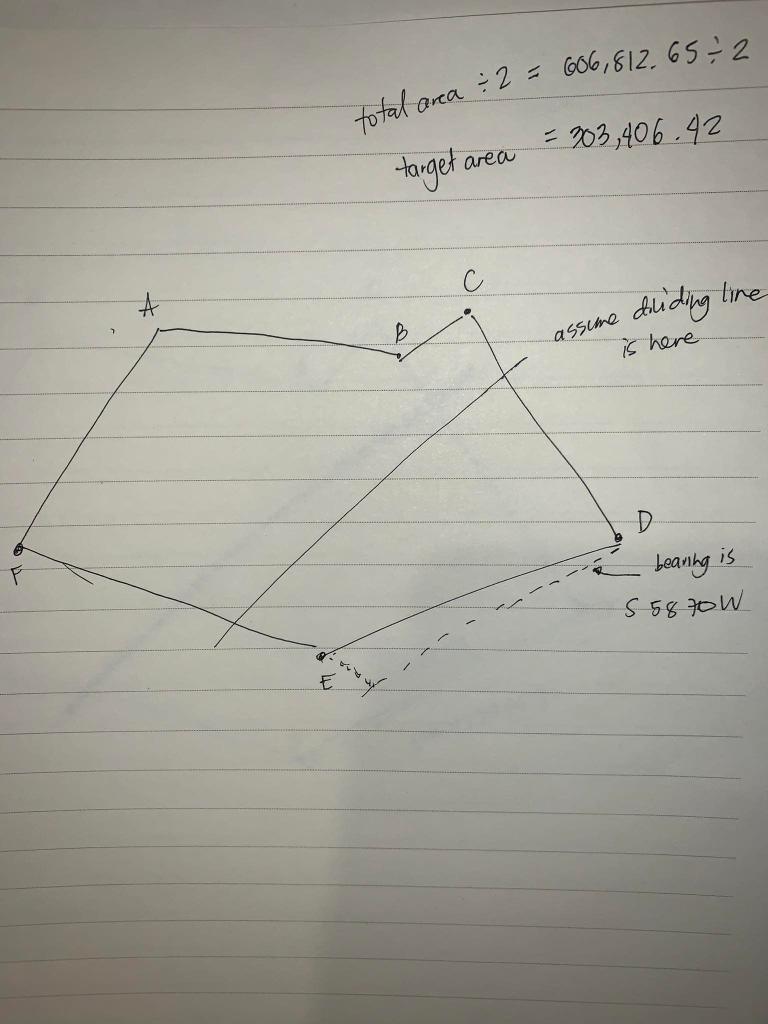 total area ÷ 2 = 606,812.65 ÷ 2
target area = 303,406.42
A
B
C
assume dividing line
is here
D
bearing is
S 58 70 W
F
E